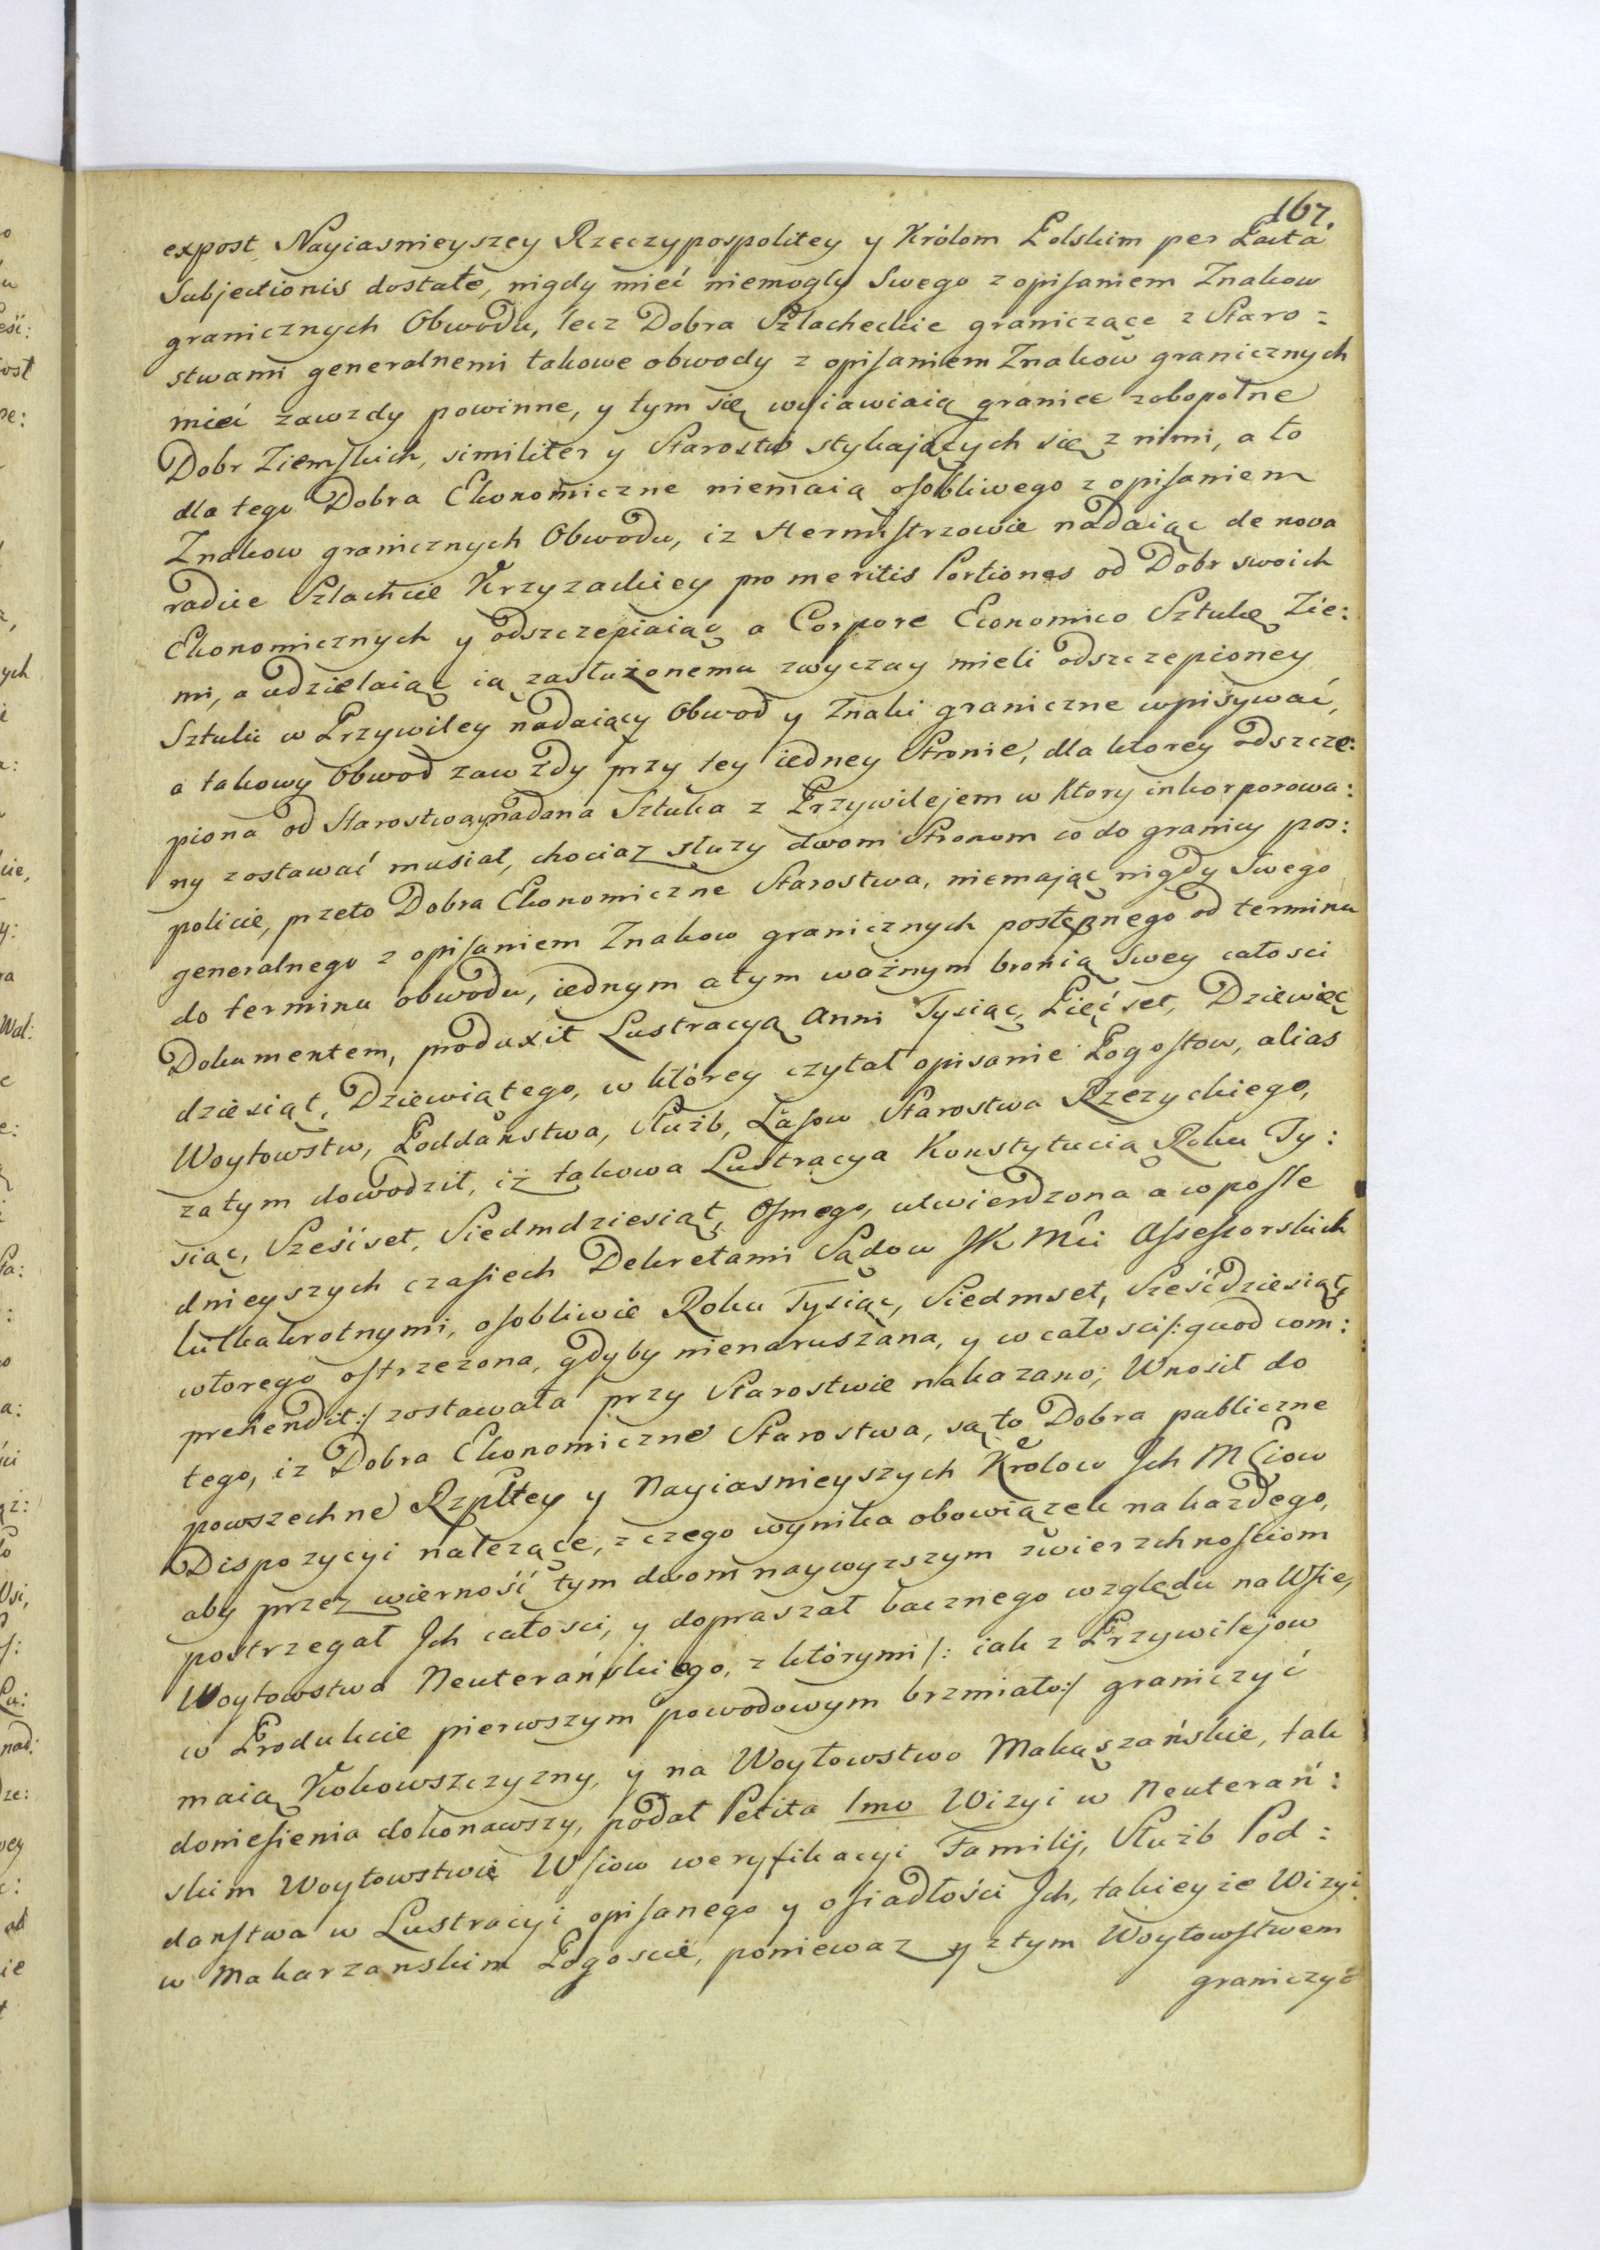 167.
expost Nayiasnieyszey Rzeczypospolitey y Królom Polskim per Pacta
Subjectionis dostałe, nigdy mieć niemogły Swego z opisaniem Znakow
granicznych Obwodu, lecz Dobra Szlacheckie graniczące z Staro=
stwami generalnemi takowe obwody z opisaniem Znaków granicznych
mieć zawzdy powinne, y tym się wyiawiaią granice zobopolne
Dobr Ziemskich, similiter y Starostw stykających się z nimi, a to
dla tego Dobra Ekonomiczne niemaią osobliwego z opisaniem
Znakow granicznych Obwodu, iz Hermistrzowie nadaiąc de nova
radice Szlachcie Krzyzackiey pro meritis Portiones od Dobr swoich
Ekonomicznych y odszczepiaiąc a Corpore Economico Sztukę Zie:
mi, a udzielaiąc ią zasłużonemu zwyczay mieli odszczepioney
Sztuki w Przywiley nadaiący Obwod y Znaki graniczne wpisywać,
a takowy Obwod zawżdy przy tey iedney Stronie, dla ktorey odszcze:
piona od Starostwa y nadana Sztuka z Przywilejem w ktory inkorporowa:
ny zostawać musiał, chociaz służy dwom Stronom co do granicy pos:
policie, przeto Dobra Ekonomiczne Starostwa, niemając nigdy Swego
generalnego z opisaniem Znakow granicznych postępnego od terminu
do terminu obwodu, iednym a tym ważnym bronią Swey całosci
Dokumentem, produxit Lustracyą Anni Tysiąc, Pięćset, Dziewięć
dziesiąt, Dziewiątego, w którey czytał opisanie Pogostow, alias
Woytowstw, Poddaństwa, Służb, Lasow Starostwa Rzeżyckiego,
za tym dowodził, iż takowa Lustracya Konstytucią Roku Ty:
siąc, Sześćset, Siedmdziesiąt, Osmego, utwierdzona a w posle
dnieyszych czasiech Dekretami Sądow JK Mći Assessorskich
kulkakrotnymi, osobliwie Roku Tysiąc, Siedmset, Sześćdziesiąt,
wtorego ostrzezona, gdyby nienaruszana, y w całosci/: quod com:
prehendit:/ zostawała przy Starostwie nakazano; Wnosił do
tego, iz Dobra Ekonomiczne Starostwa, są to Dobra publiczne
powszechne Rzpltey y Nayiasnieyszych Królow Ich MCiow
Dispozycyi nalezące, z czego wynika obowiązek na kazdego,
aby przez wierność tym dwom naywyzszym zwierzchnosciom
postrzegał Ich całosci, y dopraszał bacznego względu na Wsie,
Woytowstwa Neuterańskiego, z którymi /: iak z Przywilejow
w Produkcie pierwszym powodowym brzmiało:/ graniczyć
maią Kokowszczyzny, y na Woytowstwo Makąszańskie, tak
doniesienia dokonawszy, podał Petita 1mo Wizyi w Neuterań:
skim Woytowstwie Wsiow weryfikacyi Familij, Służb Pod:
danstwa w Lustracyi opisanego y osiadłości Ich, takieyże Wizyi
w Makarzanskim Pogoscie, poniewaz y z tym Woytowstwem
graniczyć